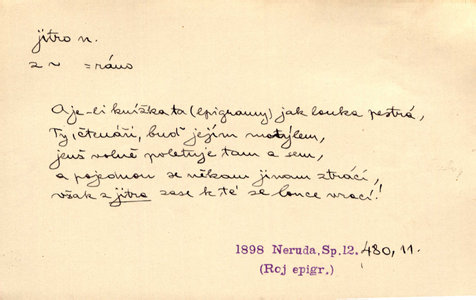 jitro n.
z ~ = ráno
A je-li knížka ta (epigramy) jak louka pestrá,
Ty, čtenáři, buď jejím motýlem,
jenž volně poletuje tam a sem,
a pojednou se někam jinam ztrácí,
však z jitra zase k té se louce vrací!
1898 Neruda, Sp. 12. 480, 11.
(Roj epigr.)